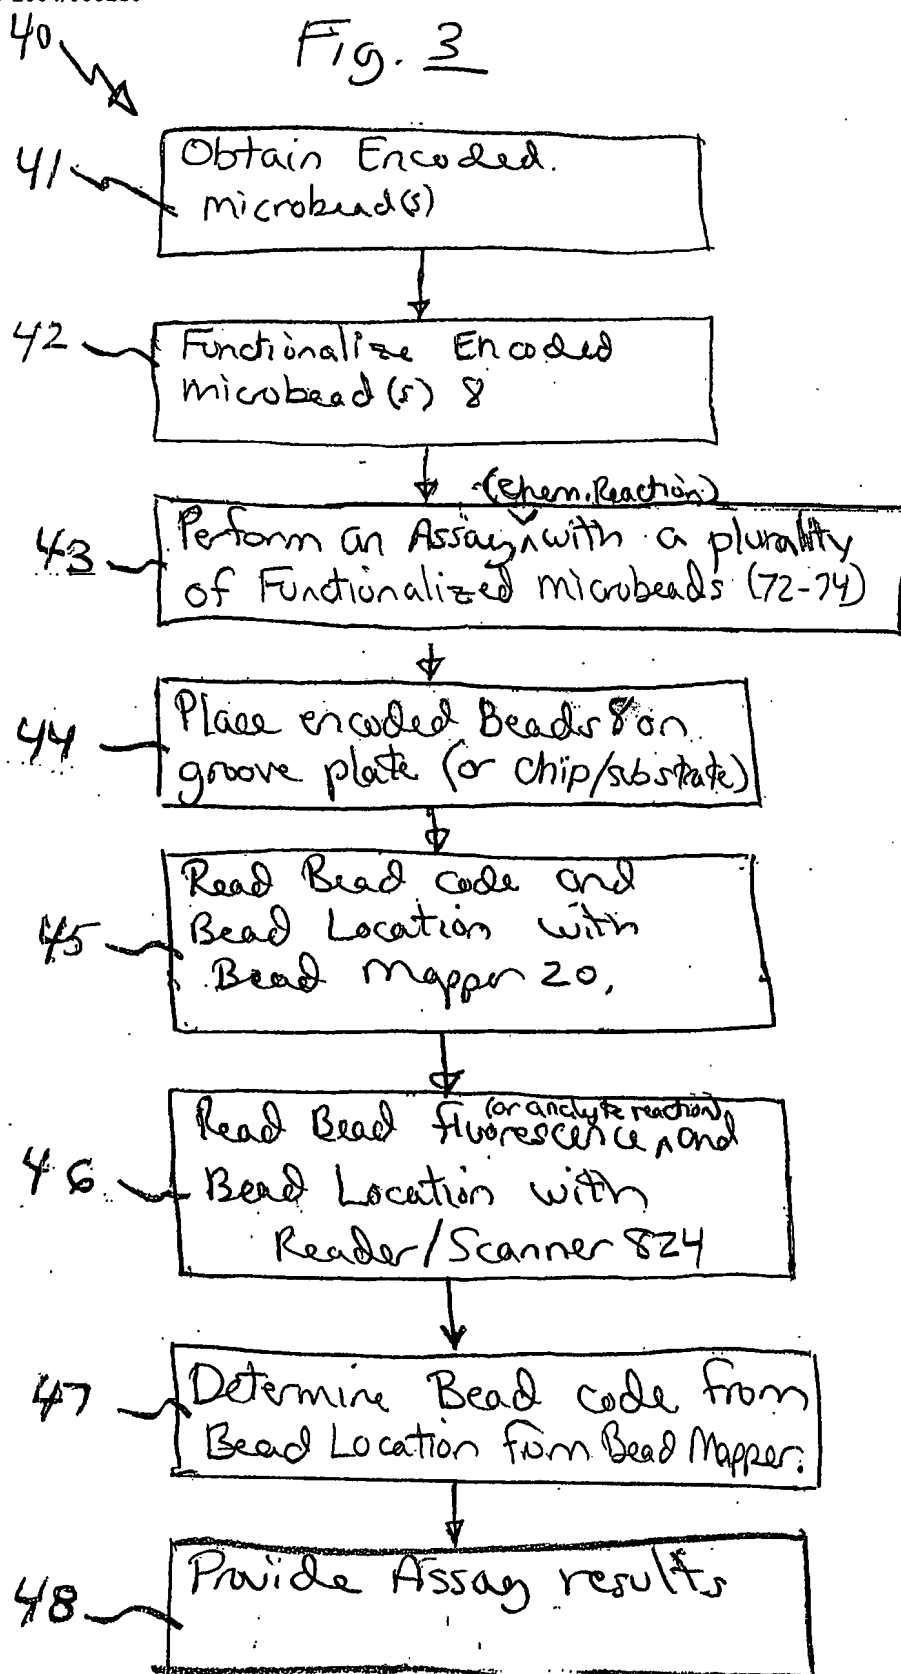 40
Fig. 3
41
Obtain Encoded.
microbead(s)
42
Functionalize Encoded
microbead(s) 8
(Chem. Reaction)
43
Perform an Assay ^ with a plurality
of Functionalized microbeads (72-74)
44
Place encoded Beads 8 on
groove plate (or chip/substrate)
45
Read Bead code and
Bead Location with
Bead Mapper 20,
(or analyte reaction)
46
Read Bead fluorescence ^ and
Bead Location with
Reader/Scanner 824
47
Determine Bead code from
Bead Location from Bead Mapper.
48
Provide Assay results